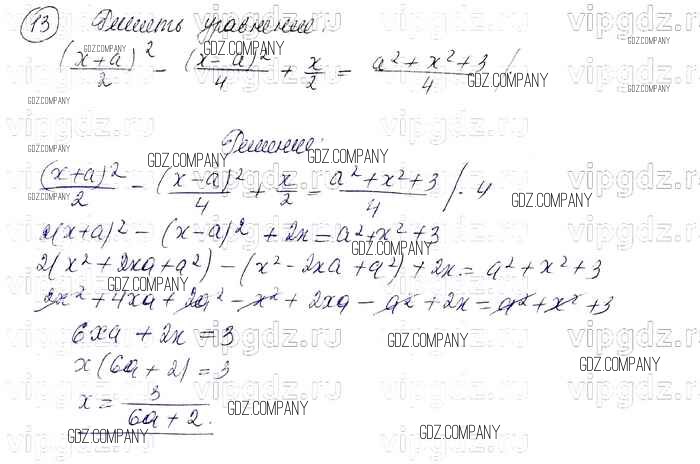 13 Решить уравнение:
(x+a)²/2 - (x-a)²/4 + x/2 = a²+x²+3/4 /
Решение:
(x+a)²/2 - (x-a)²/4 + x/2 = a²+x²+3/4 / · 4
2(x+a)² - (x-a)² + 2x = a²+x²+3
2(x²+2xa+a²) - (x²-2xa+a²) + 2x = a²+x²+3
2x²+4xa+2a² - x²+2xa - a²+2x = a²+x²+3
6xa + 2x = 3
x(6a+2) = 3
x = 3/6a+2.
GDZ.COMPANY
vipgdz.ru